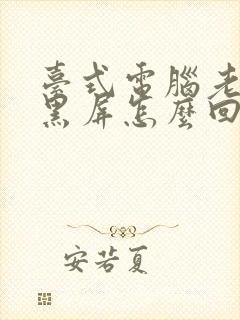 臺式電腦老
黑屏怎麼回
安若夏